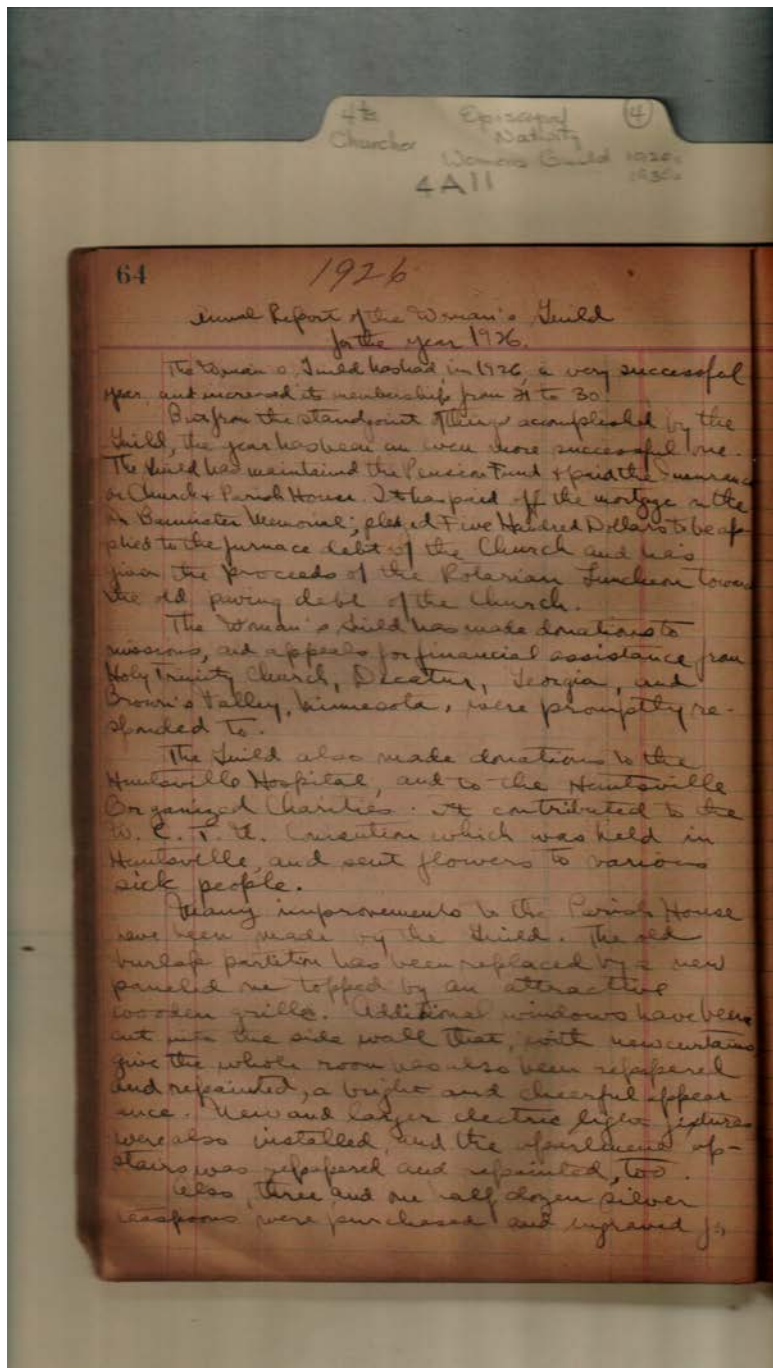 4ts Episcopal 4
Churches Nativity
Womens Guild 1920s
4A11 1930s
64 1926
Annual Report of the Woman's Guild
for the year 1926.
The Woman's Guild has had, in 1926, a very successful
year, and increased its membership from 21 to 30.
But from the standpoint of things accomplished by the
Guild, the year has been an even more successful one.
The Guild has maintained the Pension Fund + paid the Insurance
on Church + Parish House. It has paid off the mortgage on the
Bannister Memorial; pledged Five Hundred Dollars to be ap-
plied to the furnace debt of the Church and has
given the proceeds of the Rotarian Luncheon toward
the old paving debt of the Church.
The Woman's Guild has made donations to
missions, and appeals for financial assistance from
Holy Trinity Church, Decatur, Georgia, and
Brown's Valley, Minnesota, were promptly re-
sponded to.
The Guild also made donations to the
Huntsville Hospital, and to the Huntsville
Organized Charities. It contributed to the
W. C. T. U. Convention which was held in
Huntsville, and sent flowers to various
sick people.
Many improvements to the Parish House
have been made by the Guild. The old
burlap partition has been replaced by a new
paneled one topped by an attractive
wooden grille. Additional windows have been
cut into the side wall that, with new curtains
give the whole room has also been repapered
and repainted, a bright and cheerful appear
ance. New and larger electric light fixtures
were also installed, and the apartment up-
stairs was repapered and repainted, too.
Also, three and one half dozen silver
teaspoons were purchased and engraved for